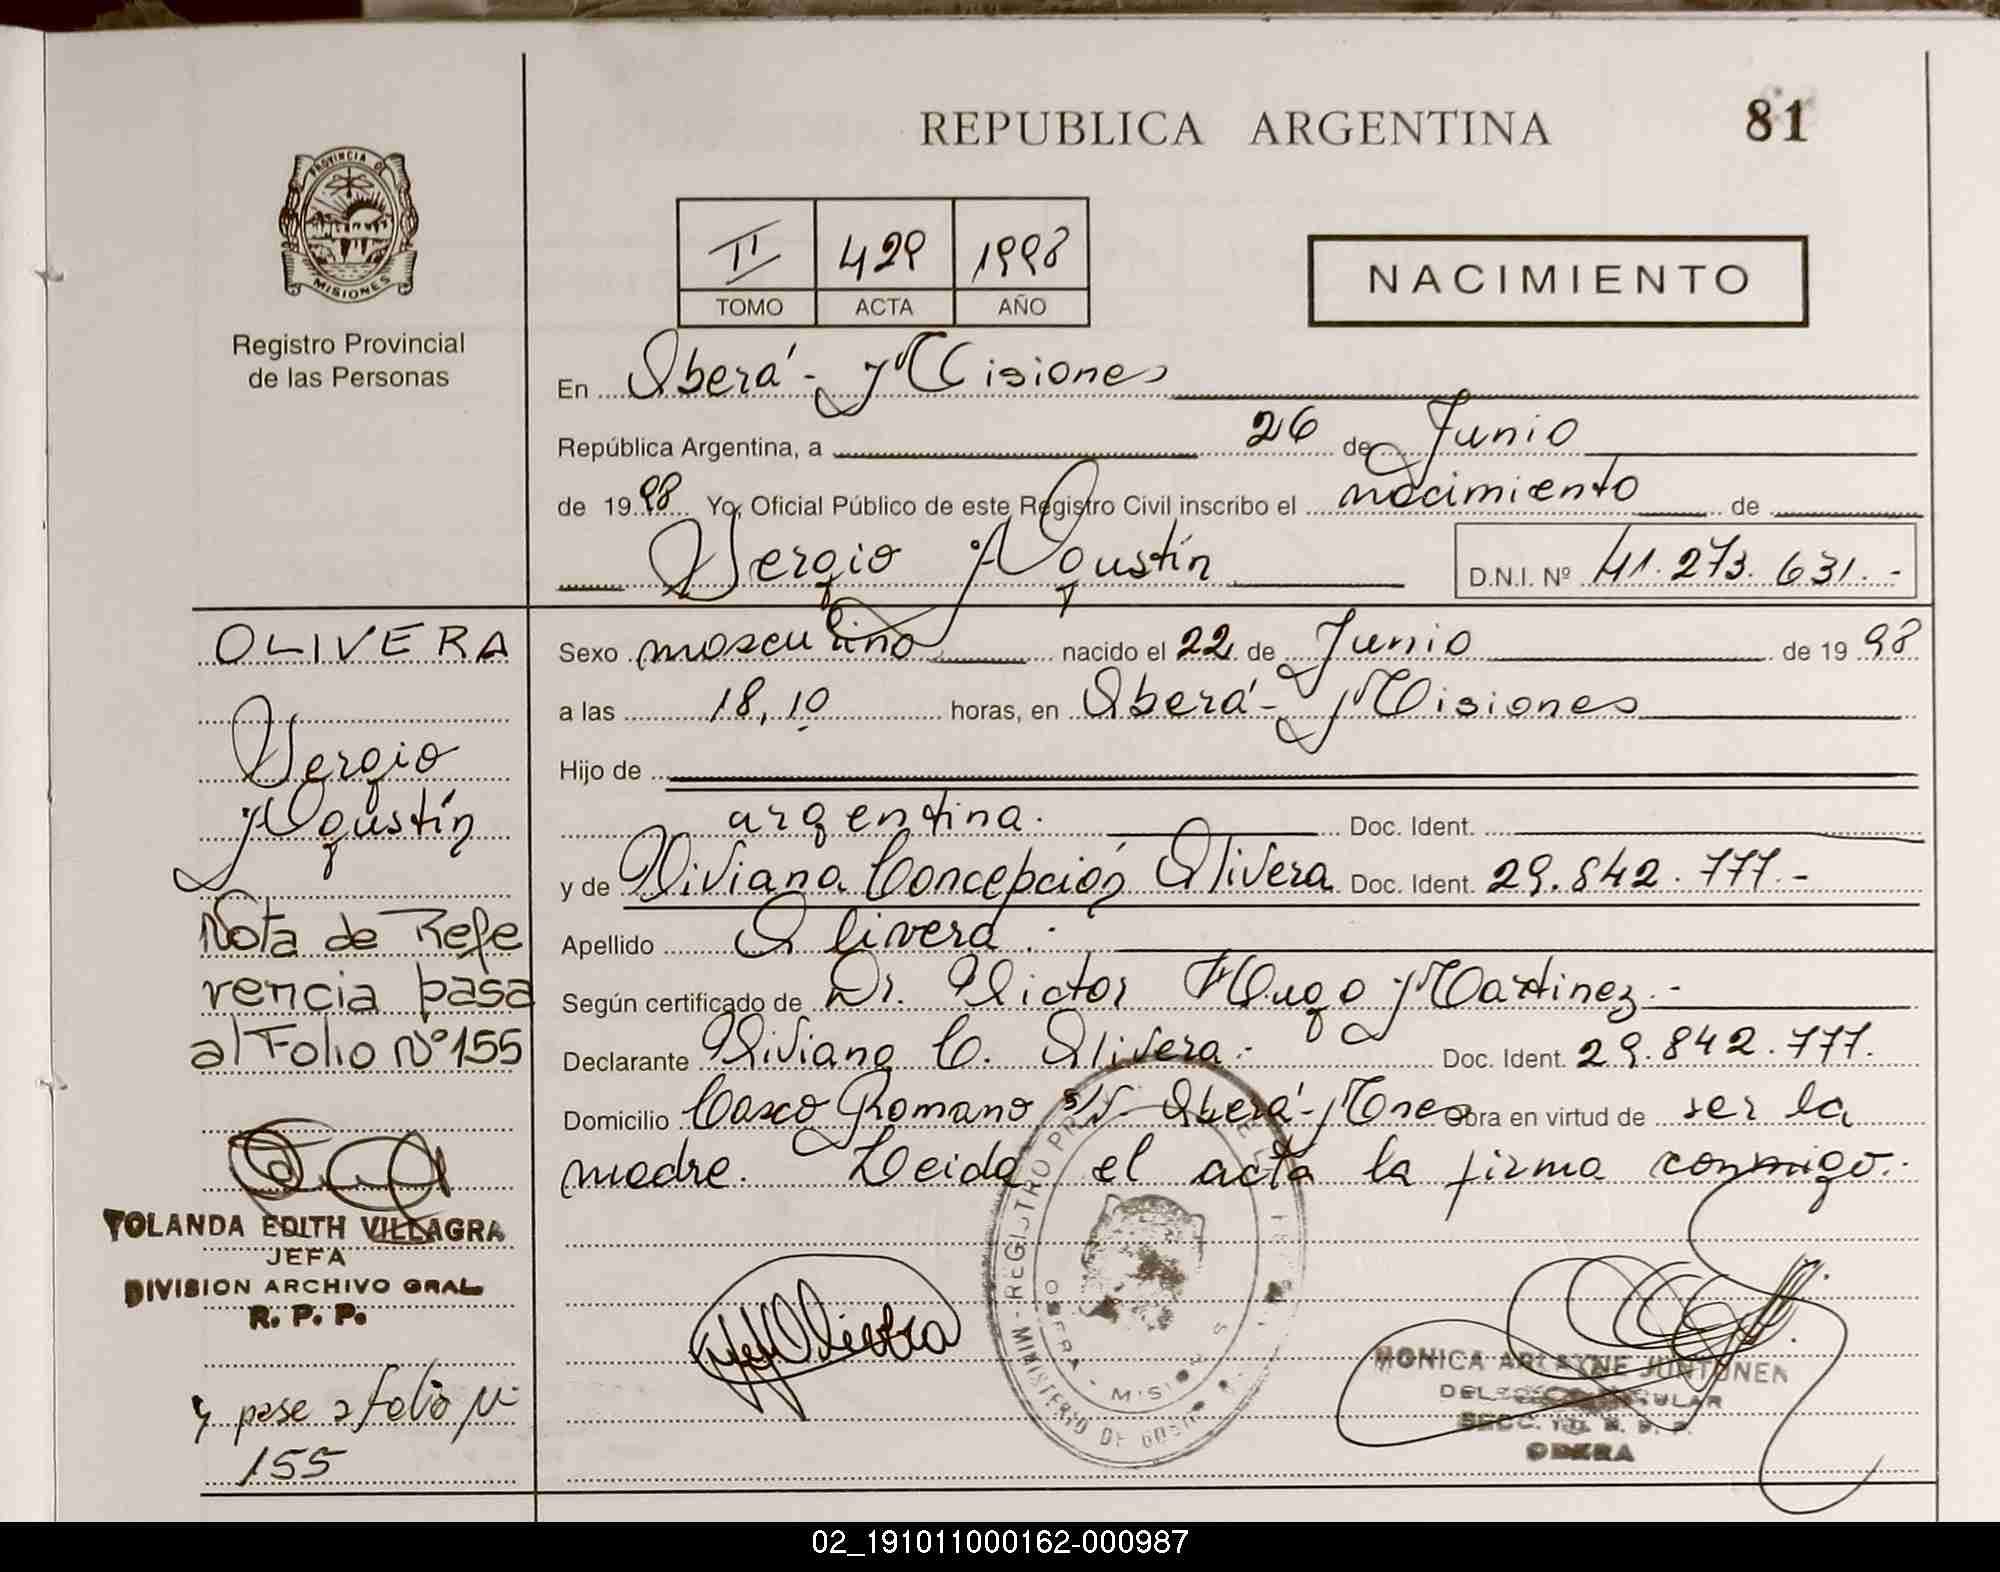 REPUBLICA ARGENTINA
81
PROVINCIA DE
MISIONES
Registro Provincial
de las Personas
II 429 1998
TOMO ACTA AÑO
NACIMIENTO
En Oberá - Misiones
República Argentina, a 26 de Junio
de 1998 Yo, Oficial Público de este Registro Civil inscribo el nacimiento de
Sergio Agustín D.N.I. Nº 41.273.631.-
OLIVERA
Sergio
Agustín
Nota de Refe
rencia pasa
al Folio Nº 155
YOLANDA EDITH VILLAGRA
JEFA
DIVISION ARCHIVO GRAL
R. P. P.
y pase a folio Nº
155
Sexo masculino nacido el 22 de Junio de 1998
a las 18,10 horas, en Oberá - Misiones
Hijo de
argentina. Doc. Ident.
y de Viviana Concepción Olivera Doc. Ident. 29.842.777.-
Apellido Olivera.-
Según certificado de Dr. Victor Hugo Martinez.-
Declarante Viviana C. Olivera.- Doc. Ident. 29.842.777.
Domicilio Casco Romano s/N- Oberá - Mnes Obra en virtud de ser la
madre. Leida el acta la firma conmigo.-
REGISTRO
MINISTERIO DE
Olivera
MONICA
OBERA
02_191011000162-000987